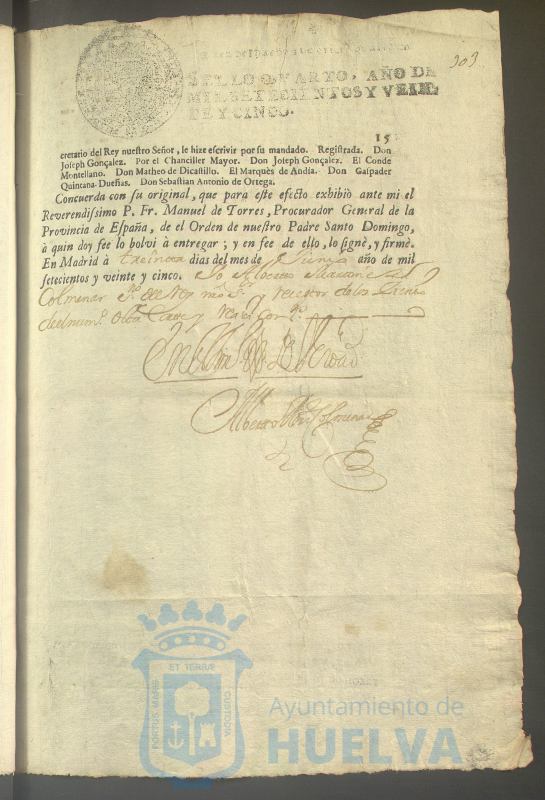 303
SELLO QVARTO, AÑO DE
MIL SETECIENTOS Y VEINTE
DE Y CINCO.
15
cretario del Rey nuestro Señor, le hize escrivir por su mandado. Registrada. Don
Joseph Gonçalez. Por el Chanciller Mayor. Don Joseph Gonçalez. El Conde
Montellano. Don Matheo de Dicastillo. El Marquès de Andia. Don Gaspader
Quintana-Dueñas. Don Sebastian Antonio de Ortega.
Concuerda con su original, que para este efecto exhibiò ante mi el
Reverendissimo P. Fr. Manuel de Torres, Procurador General de la
Provincia de España, de el Orden de nuestro Padre Santo Domingo,
à quien doy fee lo bolvi à entregar; y en fee de ello, lo signè, y firmè.
En Madrid à treinta dias del mes de Junio año de mil
setecientos y veinte y cinco. Yo Alberto
Colmenar
En testim de Verdad
Alberto Colmenar
ET TERRÆ
PORTUS MARIS
CUSTODIA
Ayuntamiento de
HUELVA